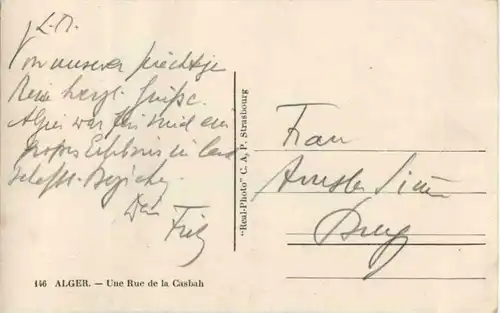 L. M.
Von unserer prächtige
Reise herzl. Grüße.
Algier war für mich ein
großes Erlebnis in land
schaftl. Beziehg.
Dein
Fritz
"Real-Photo" C. A. P. Strasbourg
Frau
146 ALGER. — Une Rue de la Casbah